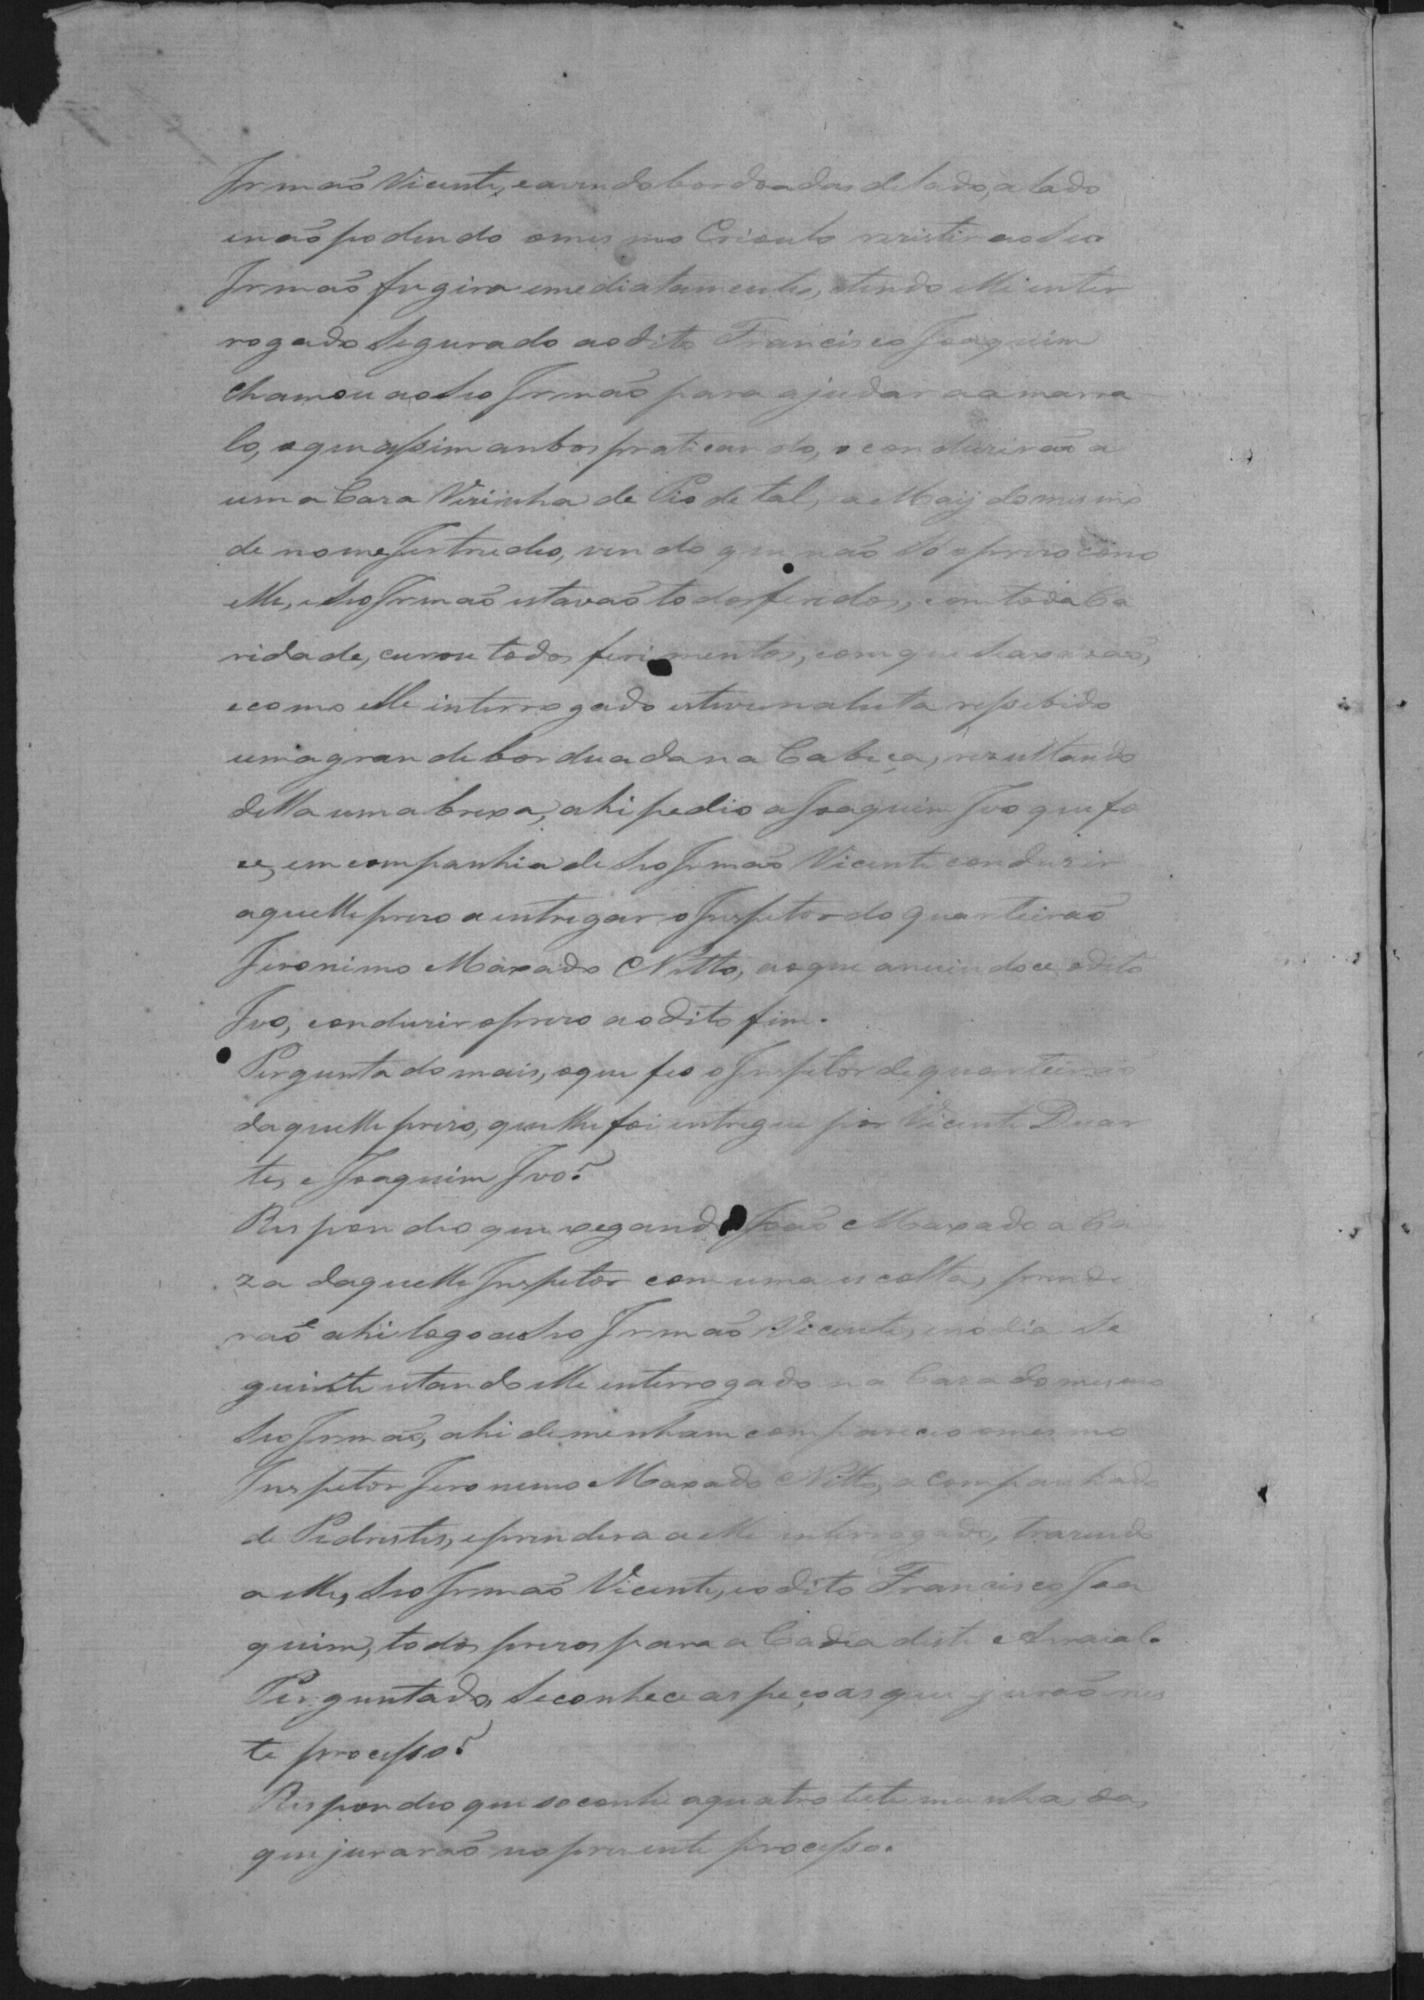 Irmão Vicente, e avendo bordoadas de lado, a lado
e não podendo o mesmo Crioulo rezistir ao Seo
Irmão fugira emediatamente, e tendo elle inter
rogado Segurado ao dito Francisco Joaquim
chamou ao Seo Irmão para ajudar a amarra
lo, o que assim ambos praticando, o conduzirão a
uma Caza Vizinha de Pio de tal, a Maÿ do mesmo
de nome Jertrudes, vendo que não So o prezo como
elle, e Seo Irmão estavão todos feridos, com toda Ca
ridade, curou todos ferimentos, com que Se axavão,
e como elle interrogado esteve na luta ressebido
uma grandeborduada na Cabeça, rezultando
della uma brexa, ahi pedio a Joaquim Ivo que fo
ce, em companhia de Seo Irmão Vicente conduzir
aquelle prezo a entregar o Inspetor do quarteirão
Jeronimo Maxado Netto, ao que anuindoce o dito
Ivo, conduzir o prezo ao dito fim.
Perguntado mais, o que fes o Inspetor de quarteirão
daquelle prezo, que lhe foi entregue por Vicente Duar
te, e Joaquim Ivo?
Respondeo que xegando João Maxado a Ca
za daquelle Inspetor com uma escolta, prende
rão ahi logo a Seo Irmão Vicente, e no dia Se
guinte estando elle interrogado na Caza do mesmo
Seo Irmão, ahi de menham compareceo o mesmo
Inspetor Jeronimo Maxado Netto, acompanhado
de Pedrestes, e prendera a elle interrogado, trazendo
a elle, Seo Irmão Vicente, e o dito Francisco Joa
quim, todos prezos para a Cadea deste Arraial.
Perguntado, Se conhece as peçoas que jurão nes
te processo?
Respondeo que so conhe a quatro testemunhas, das
que jurarão no prezente processo.